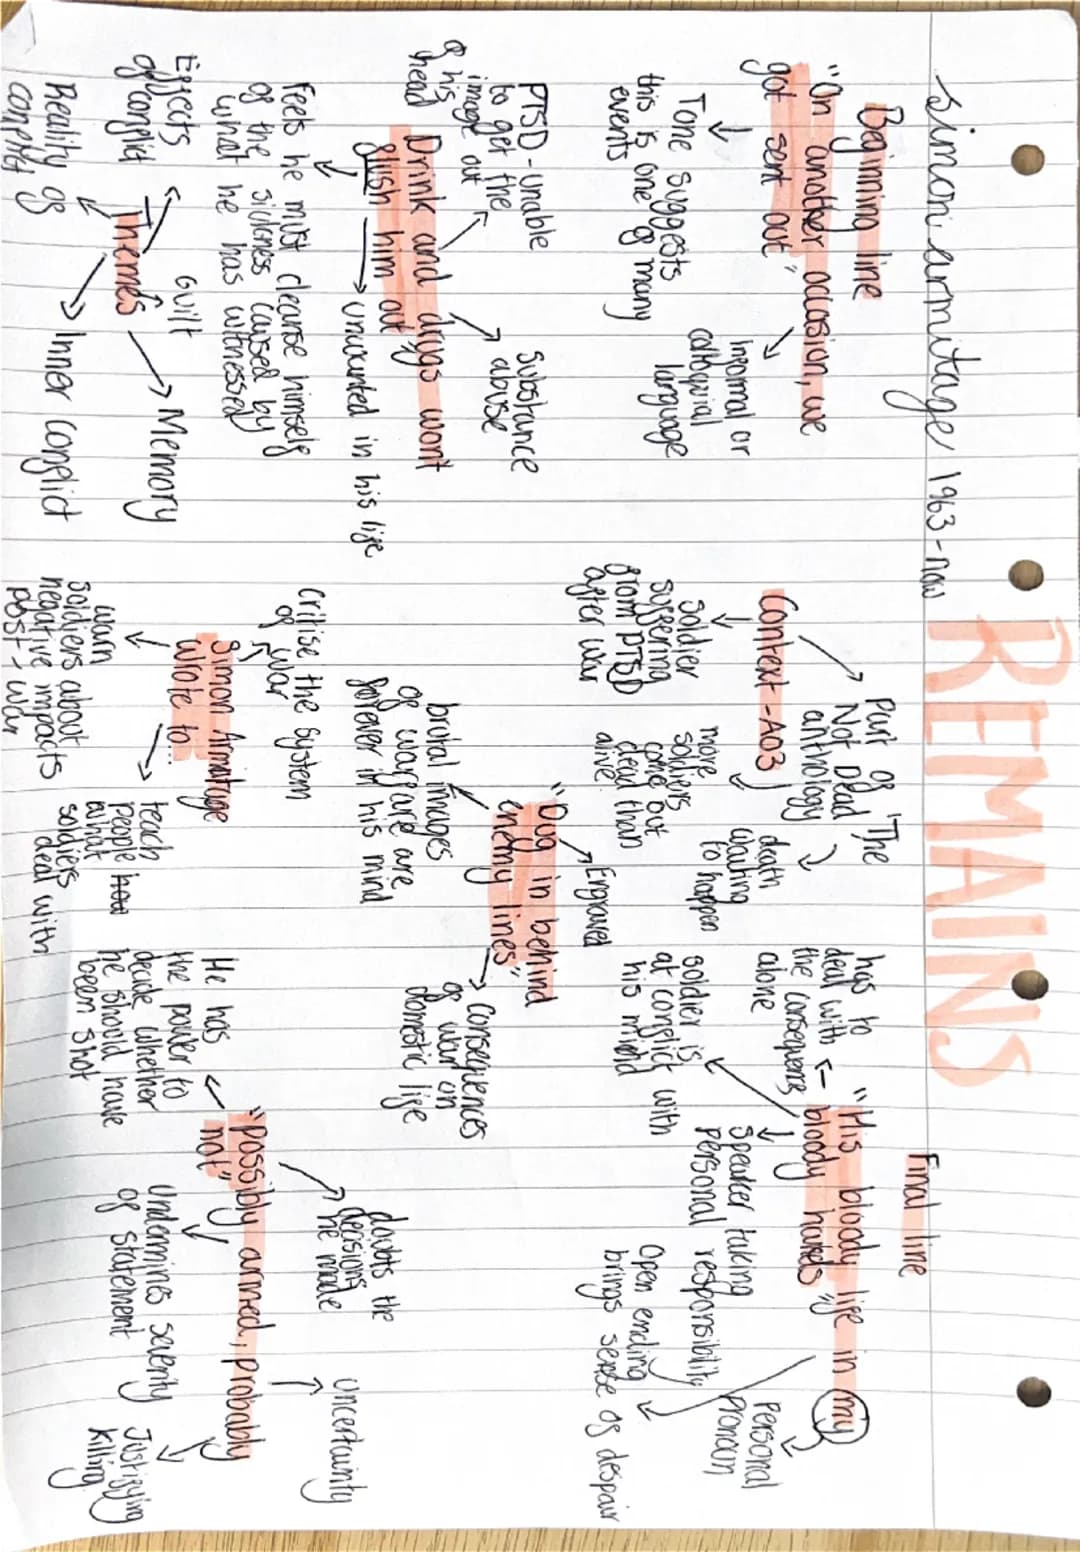 REMAINS
simon armitage 1963-now
Beginning line
"On another occasion, we
got sent out"
Tone suggests
this is one of many
events
informal or
colloquial
language
PTSD - unable
to get the
image out
of his
head
substance
abuse
Drink and drugs wont
flush him out"
unwanted in his life
Feels he must cleanse himself
of the sickness caused by
what he has witnessed
Effects
of conflict
Guilt
Themes
Memory
Reality of
conflict
Inner conflict
Context - AO3
Part of 'The
Not Dead'
anthology
soldier
suffering
from PTSD
after war
more
soldiers
come out
dead than
alive
death
waiting
to happen
"Dug in behind
enemy lines"
Engraved
brutal images
of warfare are
forever in his mind
consequences
of war on
domestic life
critise the system
of war
Simon Armitage
wrote to...
warn
soldiers about
negative impacts
post-war
teach
people how
what
soldiers
deal with
Final line
"His bloody life in my
bloody hands"
has to
deal with
the consequences
alone
soldier is
at conflict with
his mind
speaker taking
personal responsibility
Personal
Pronoun
Open ending
brings sense of despair
"possibly armed, probably
not"
He has
the power to
decide whether
he should have
been shot
doubts the
decisions
he made
uncertainty
undermines severity
of statement
Justifying
killing